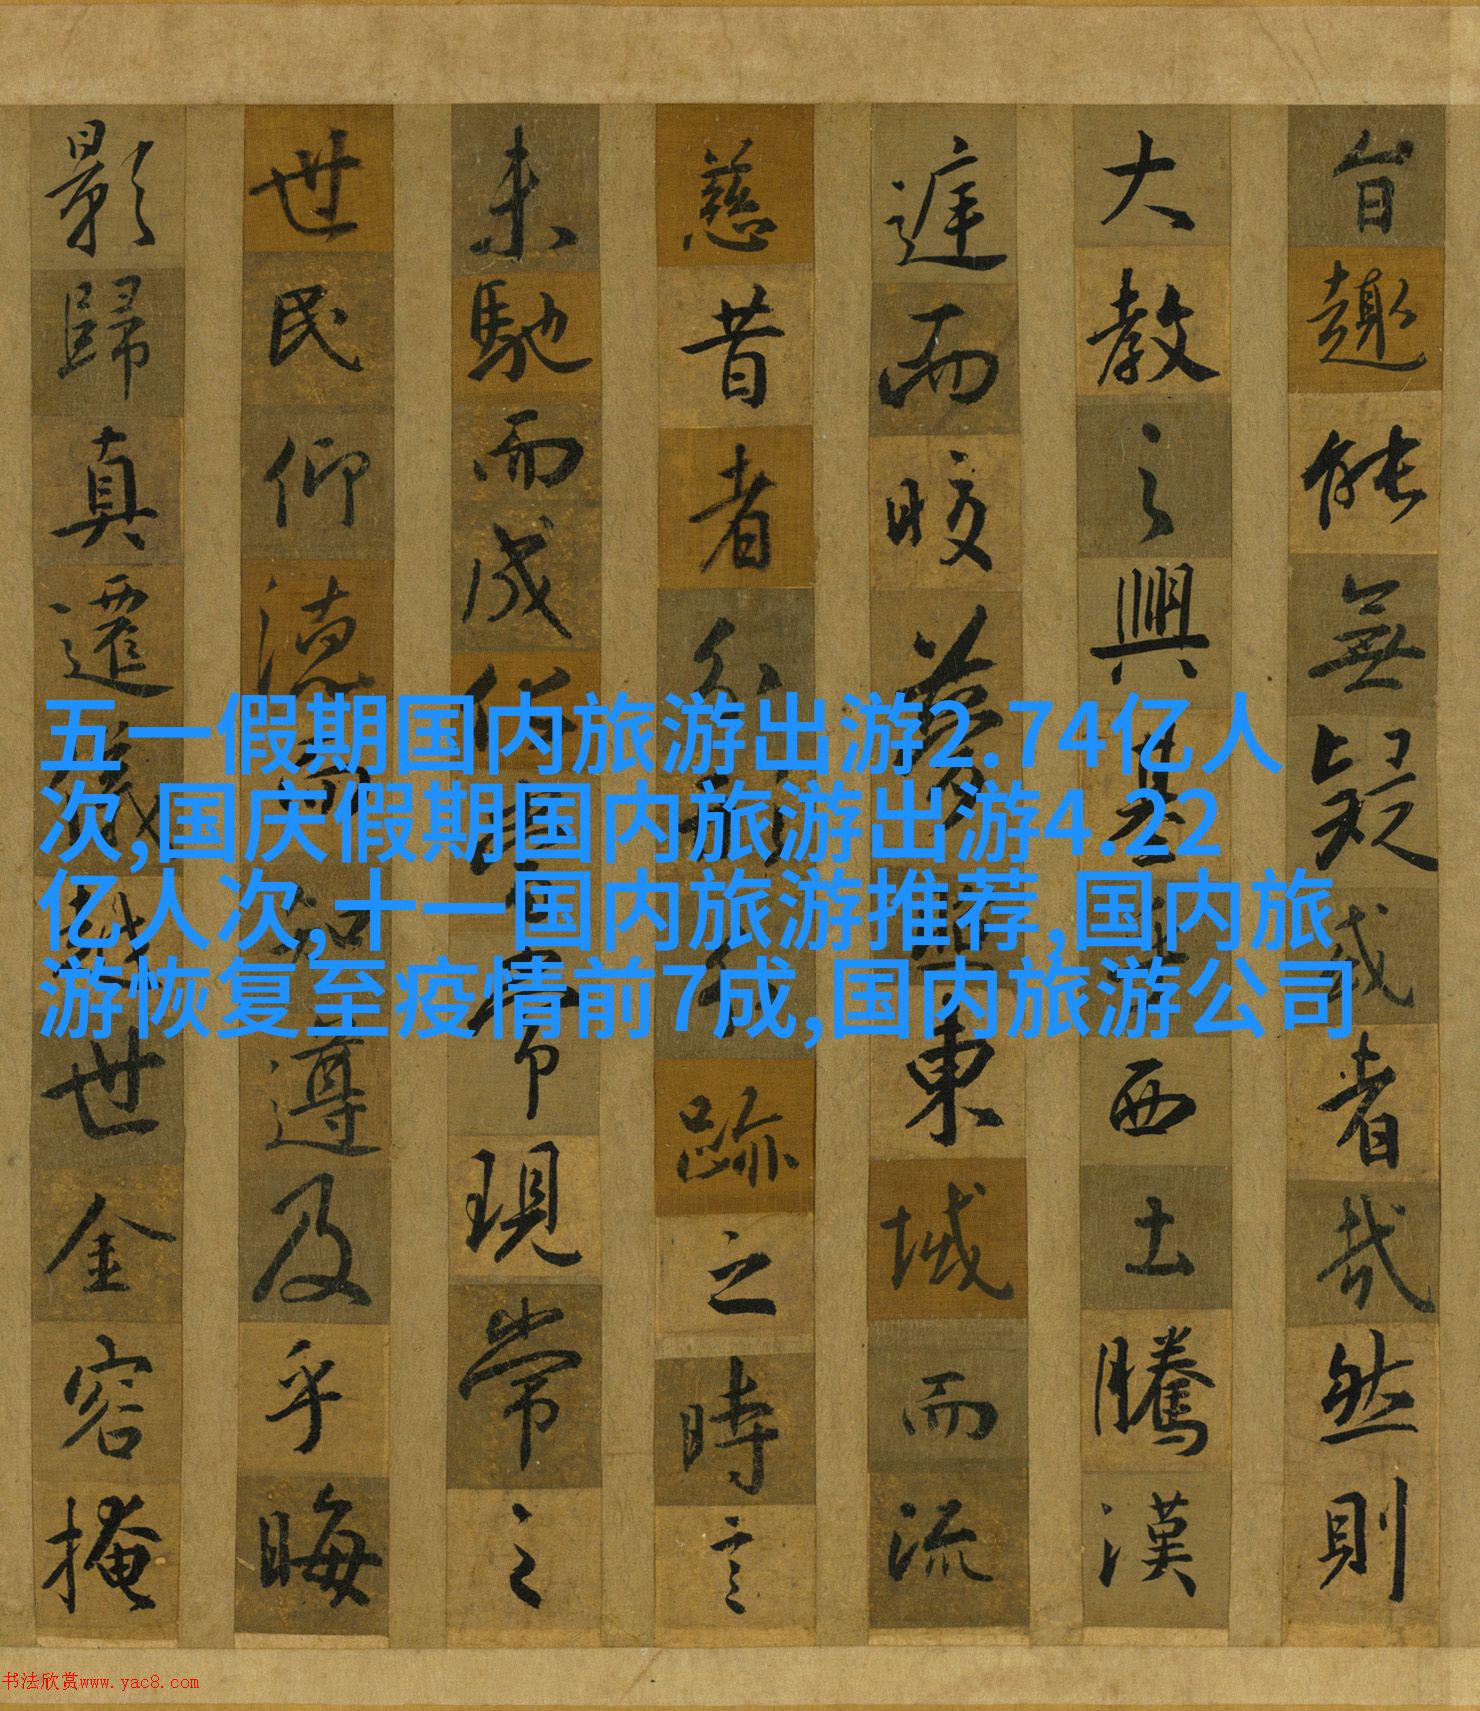 旨趣能無疑或者哉然則
大教之興基乎西土騰漢
庭而皎夢照東域而流
慈昔者分形分跡之時言
未馳而成俗當常現常之
世民仰德而知遵及乎晦
影歸真遷儀越世金容掩
五一假期国内旅游出游2.74亿人
次,国庆假期国内旅游出游4.22
亿人次,十一国内旅游推荐,国内旅
游恢复至疫情前7成,国内旅游公司
书法欣赏www.yac8.com